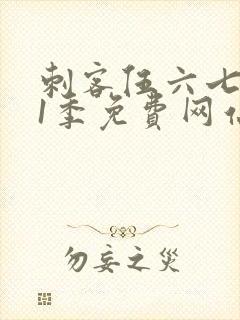 刺客伍六七
1季免費网
勿妄之災